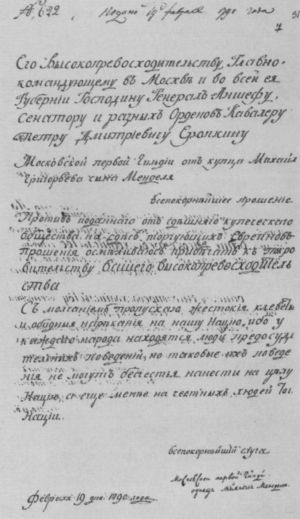 № 622 Подано 19 февраля 1790 года
7
Его Высокопревосходительству, Главно-
командующему в Москве и во всей ея
Губернии Господину Генерал Аншефу,
Сенатору и разных Орденов Кавалеру
Петру Дмитриевичу Еропкину
Московской первой Гильдии от купца Михаил
Григорьева сына Менделя
всепокорнейшее прошение
Против поданнаго от здешняго купеческаго
общества на здесь торгующих Евреинов
прошения осмеливаюсь прибегнуть к
вительству вашего высокопревосходитель
ства
С молчанием пропуская жестокия клеветы
и обидныя нарекания на нашу Нацию, ибо у
каждаго народа находятся люди предосуди
тельных поведений, но таковые их поведе
ния не могут безчестья нанести на целую
Нацию, а еще менее на честных людей той
Нации.
всепокорнейший слуга
Московской первой Гильдии
купец Михаил Мендель
Февраля 19 дня 1790 года